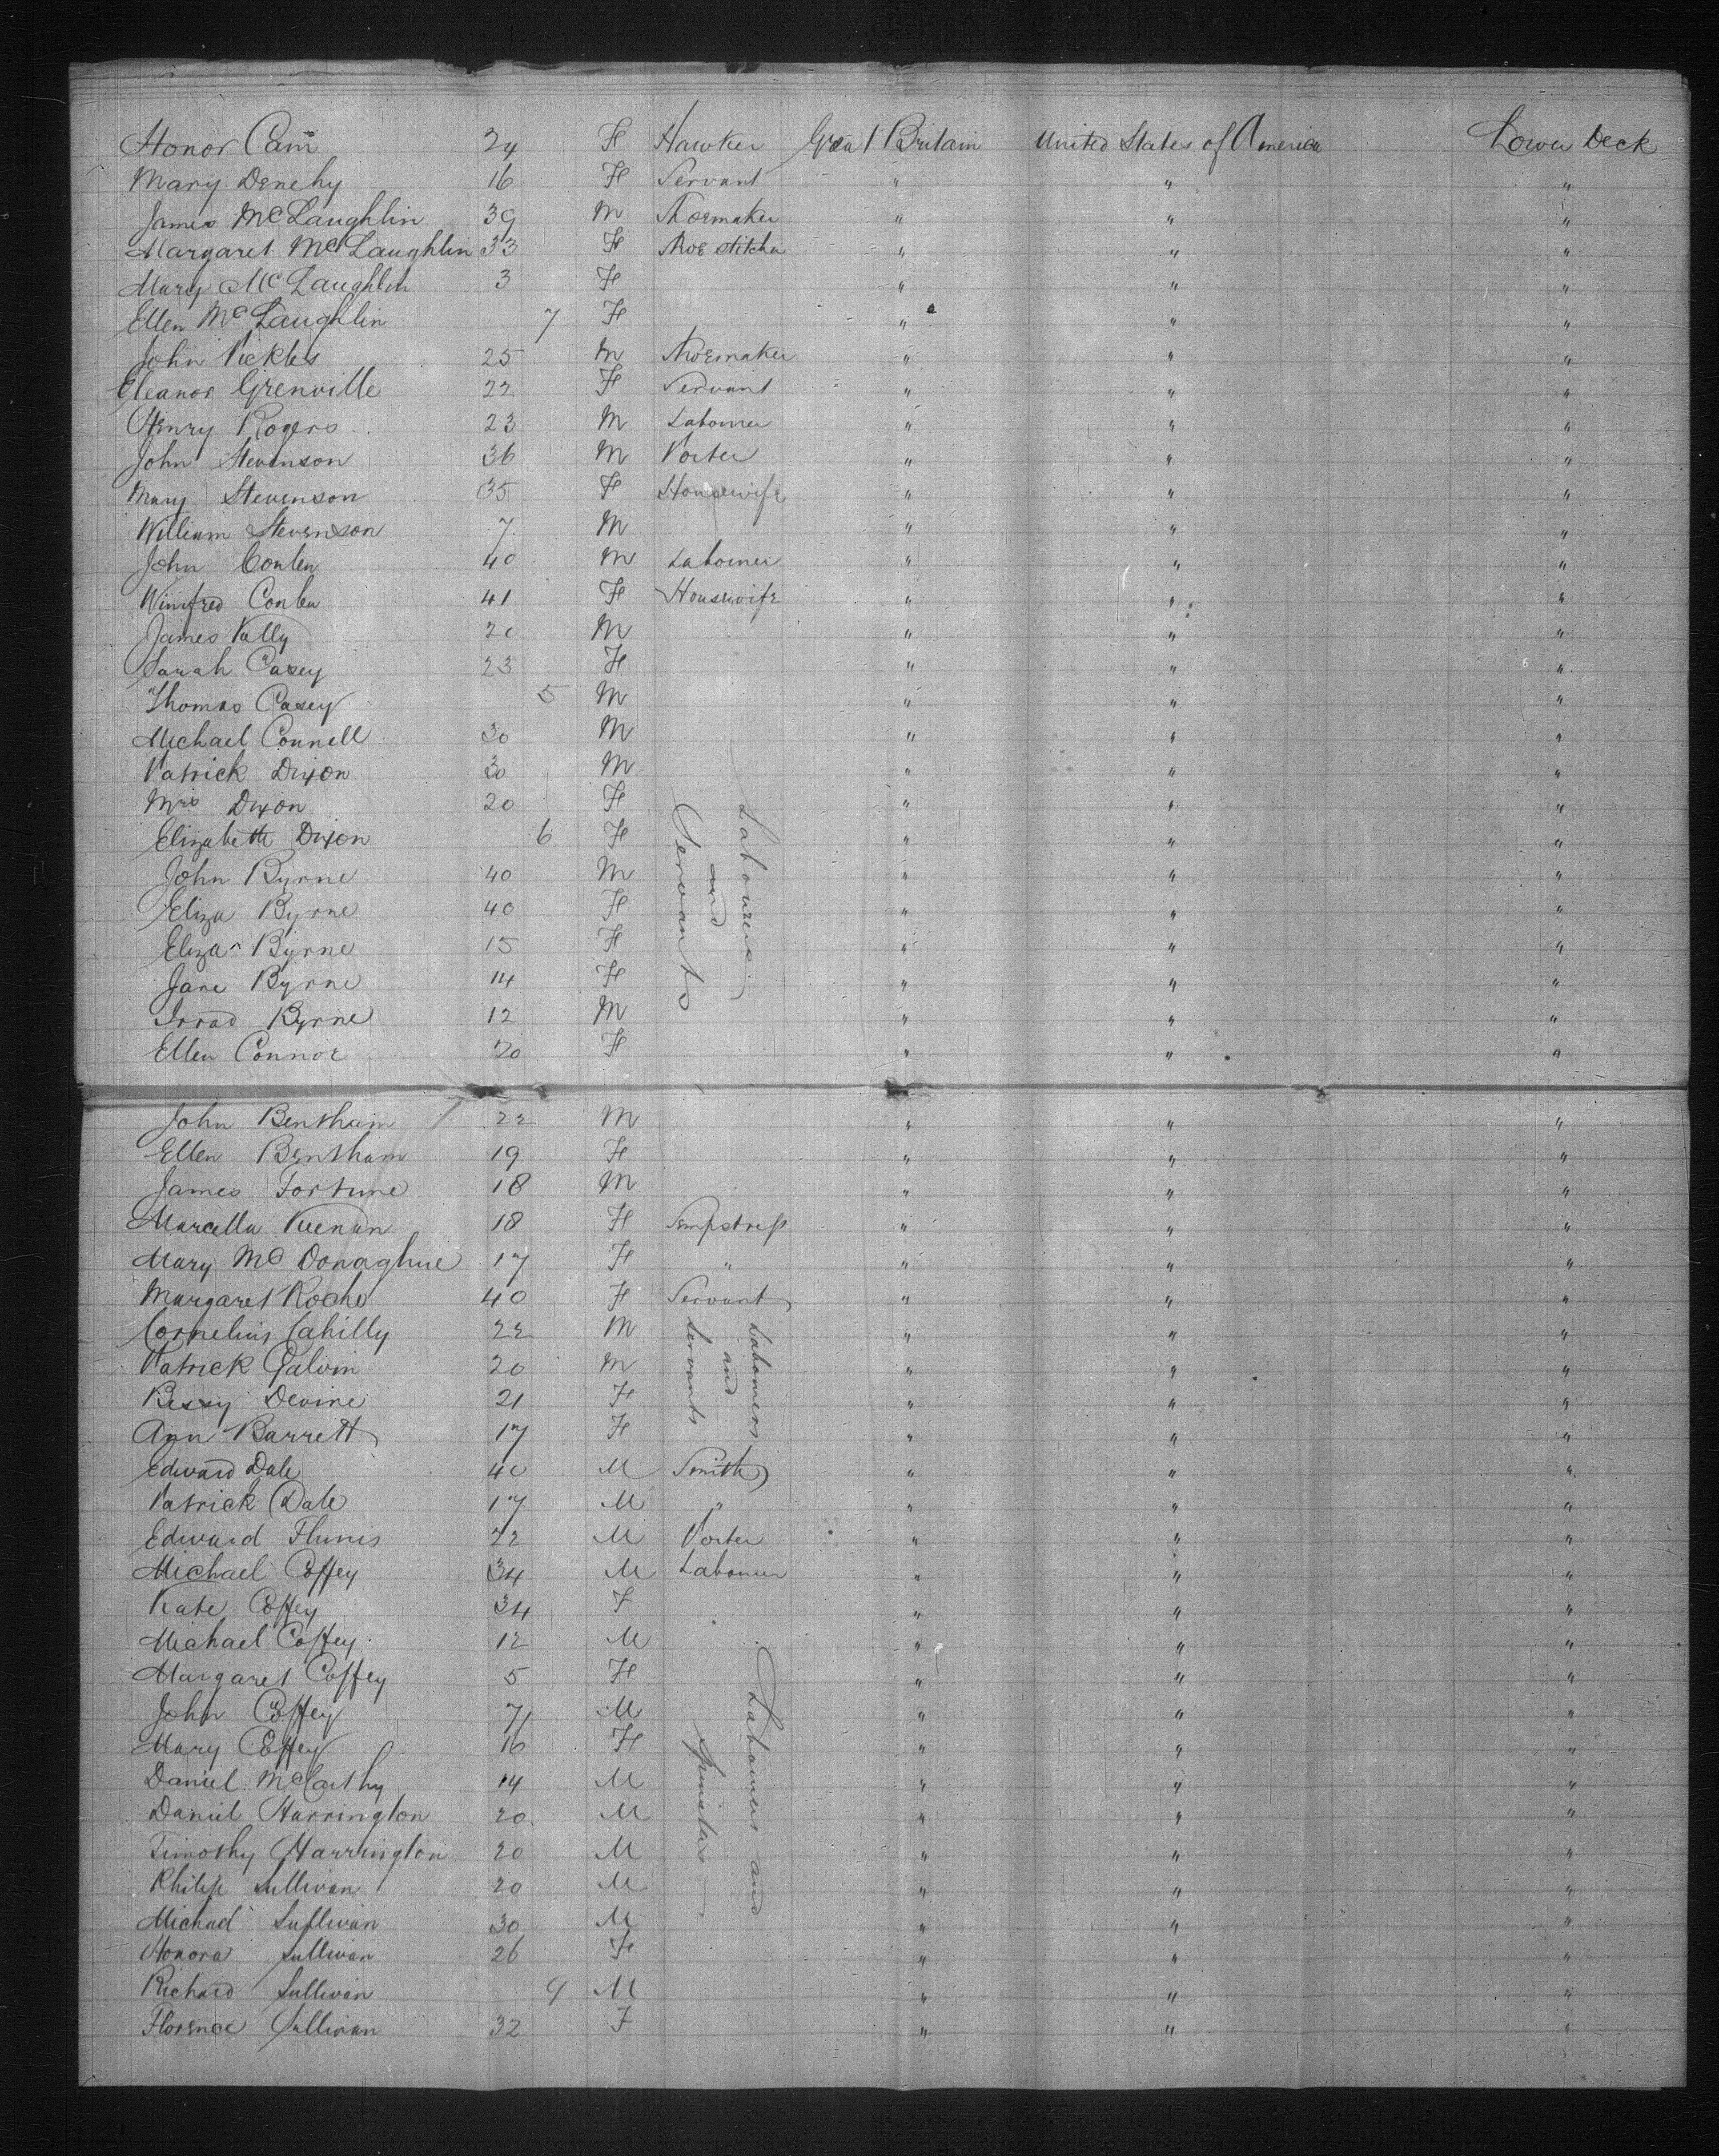 Honor Cain 24 F Hawker Great Britain United States of America Lower Deck
Mary Denehy 16 F Servant " " "
James McLaughlin 39 M Shoemaker " " "
Margaret McLaughlin 33 F Shoe stitcher " " "
Mary McLaughlin 3 F " " "
Ellen McLaughlin 7 F " " "
John Pickles 25 M Shoemaker " " "
Eleanor Grenville 22 F Servant " " "
Henry Rogers 23 M Labourer " " "
John Stevenson 36 M Porter " " "
Mary Stevenson 35 F Housewife " " "
William Stevenson 7 M " " "
John Conlen 40 M Labourer " " "
Winifred Conlen 41 F Housewife " " "
James Vally 20 M " " "
Sarah Casey 23 F " " "
Thomas Casey 5 M " " "
Michael Connell 30 M " " "
Patrick Dixon 30 M " " "
Mrs Dixon 20 F " " "
Elizabeth Dixon 6 F " " "
John Byrne 40 M " " "
Eliza Byrne 40 F " " "
Eliza Byrne 15 F " " "
Jane Byrne 14 F " " "
Byrne 12 M " " "
Ellen Connor 20 F " " "
Labourers
and
Servants
John Bentham 22 M " " "
Ellen Bentham 19 F " " "
James Fortune 18 M " " "
Marcella Keenan 18 F Sempstress " " "
Mary McDonaghue 17 F " " " "
Margaret Roche 40 F Servant " " "
Cornelius Cahilly 22 M " " "
Patrick Galvin 20 M " " "
Bessy Devine 21 F " " "
Ann Barrett 17 F " " "
Labourers
and
Servants
Edward Dale 40 M Smith " " "
Patrick Dale 17 M " " " "
Edward 22 M Porter " " "
Michael Coffey 34 M Labourer " " "
Kate Coffey 34 F " " "
Michael Coffey 12 M " " "
Margaret Coffey 5 F " " "
John Coffey 71 M " " "
Mary Coffey 16 F " " "
Daniel McCarthy 14 M " " "
Daniel Harrington 20 M " " "
Timothy Harrington 20 M " " "
Philip Sullivan 20 M " " "
Michael Sullivan 30 M " " "
Honora Sullivan 26 F " " "
Richard Sullivan 9 M " " "
Florence Sullivan 32 F " " "
Labourers and
Spinster